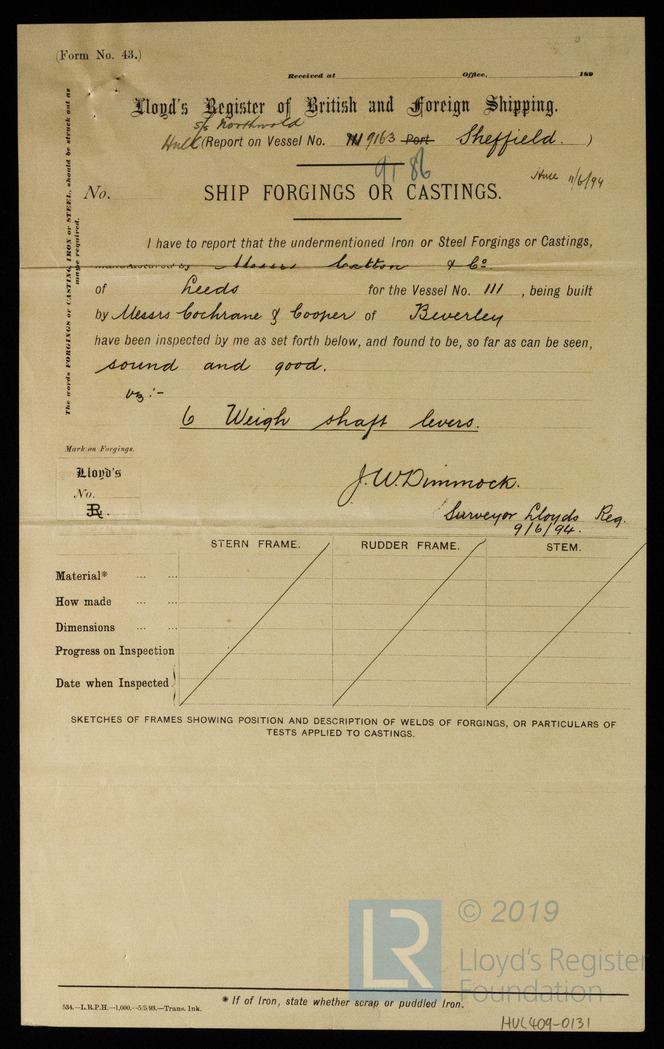 (Form No. 43.)
Received at Office, 189
Lloyd's Register of British and Foreign Shipping.
s/s Northwold
Hull (Report on Vessel No. 111 9163 Port Sheffield. )
91 86
Hull 11/6/94
No. SHIP FORGINGS OR CASTINGS.
The words FORGINGS or CASTING, IRON or STEEL, should be struck out as may be required.
I have to report that the undermentioned Iron or Steel Forgings or Castings,
manufactured by Messrs Catton & Co
of Leeds for the Vessel No. 111, being built
by Messrs Cochrane & Cooper of Beverley
have been inspected by me as set forth below, and found to be, so far as can be seen,
sound and good.
viz :-
6 Weigh shaft levers.
Mark on Forgings.
Lloyd's
No.
LR.
J. W. Dimmock.
Surveyor Lloyds Reg.
9/6/94.
STERN FRAME. RUDDER FRAME. STEM.
Material* ... ...
How made ... ...
Dimensions ... ...
Progress on Inspection
Date when Inspected
SKETCHES OF FRAMES SHOWING POSITION AND DESCRIPTION OF WELDS OF FORGINGS, OR PARTICULARS OF
TESTS APPLIED TO CASTINGS.
LR © 2019
Lloyd's Register
Foundation
* If of Iron, state whether scrap or puddled Iron.
534.—L.R.P.H.—1,000.—5/5/93.—Trans. Ink.
HUL409-0131